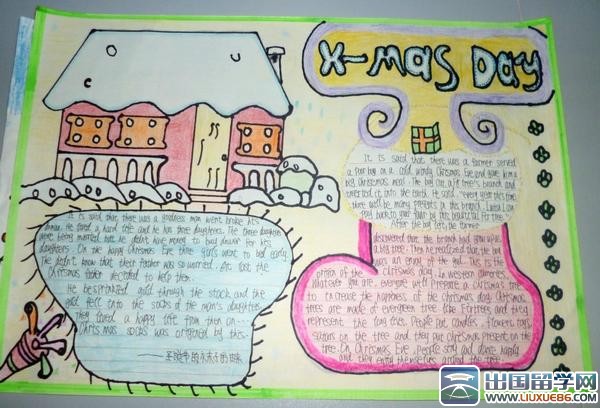 X-mas Day
It is said that there was a farmer served
a poor boy on a cold windy Christmas Eve and gave him a
big Christmas meal. The boy cut a fir tree's branch and
inserted it into the earth. He said, "every year this time
there will be many presents in this branch. I will
pay back to your favor by this beautiful Fir Tree."
After the boy left, the farmer
discovered that the branch had grew up as
a big tree. Then he realized that the boy
was an envoy of the god. This is the
origin of the Christmas day. In western countries,
whatever you are, everyone will prepare a Christmas tree
to increase the happiness of the Christmas day. Christmas
trees are made of evergreen tree like Fir trees and they
represent the long live. People put candles, flowers, toys,
stars on the tree and they put Christmas present on the
tree. On Christmas Eve, people sing and dance happily
and they enjoy themselves around the tree.
It is said that there was a goodness man went broke his
He lived a hard life and he has three daughters. The three daughters
were being married but he didn't have money to buy for his
daughters. On the happy Christmas Eve three girls went to bed early.
They didn't know that their father was so worried. At last the
Christmas father decided to help them.
He be sprinkled gold through the stack and the
gold fell into the socks of the man's daughters.
They lived a happy life from then on...
Christmas socks was origined by this.
——圣诞节的
出国留学网
www.liuxue86.com